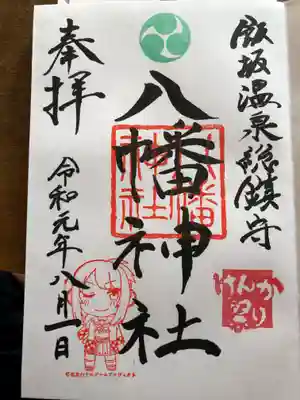 飯坂温泉総鎮守
八幡神社
八幡
神社
けんか
祭り
奉拝
令和元年八月一日